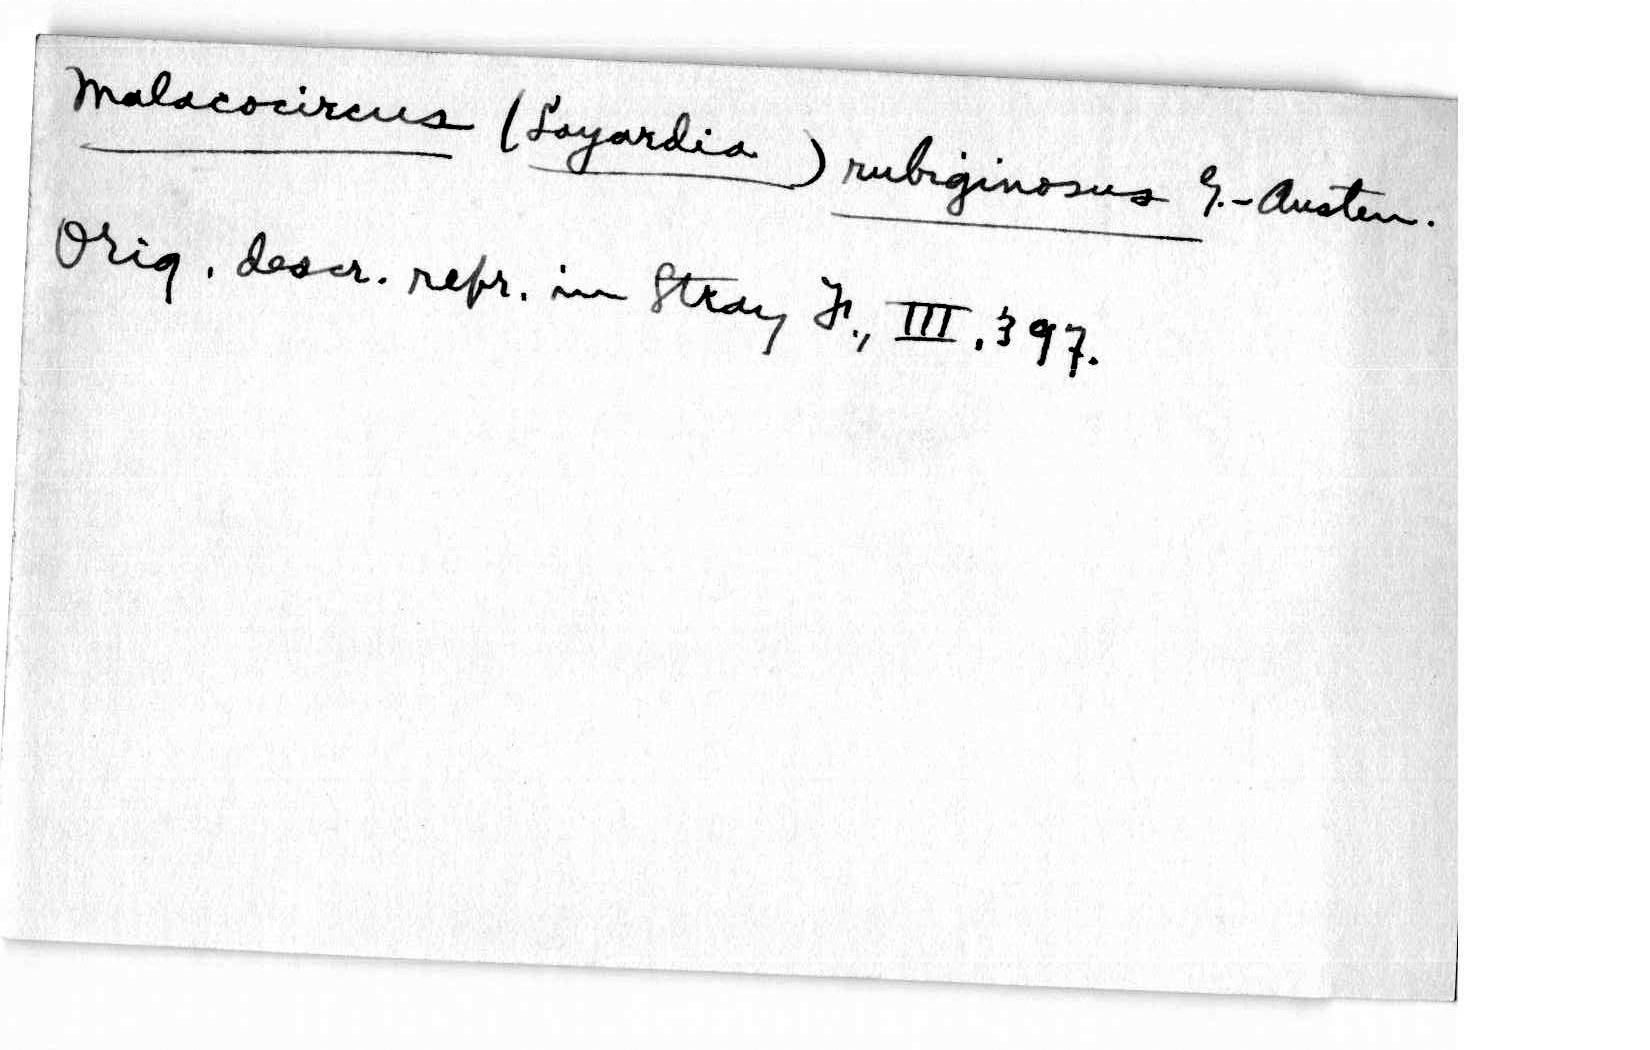 Malacocircus (Layardia) rubiginosus G.-Austen.
Orig. descr. repr. in Stray F., III, 397.